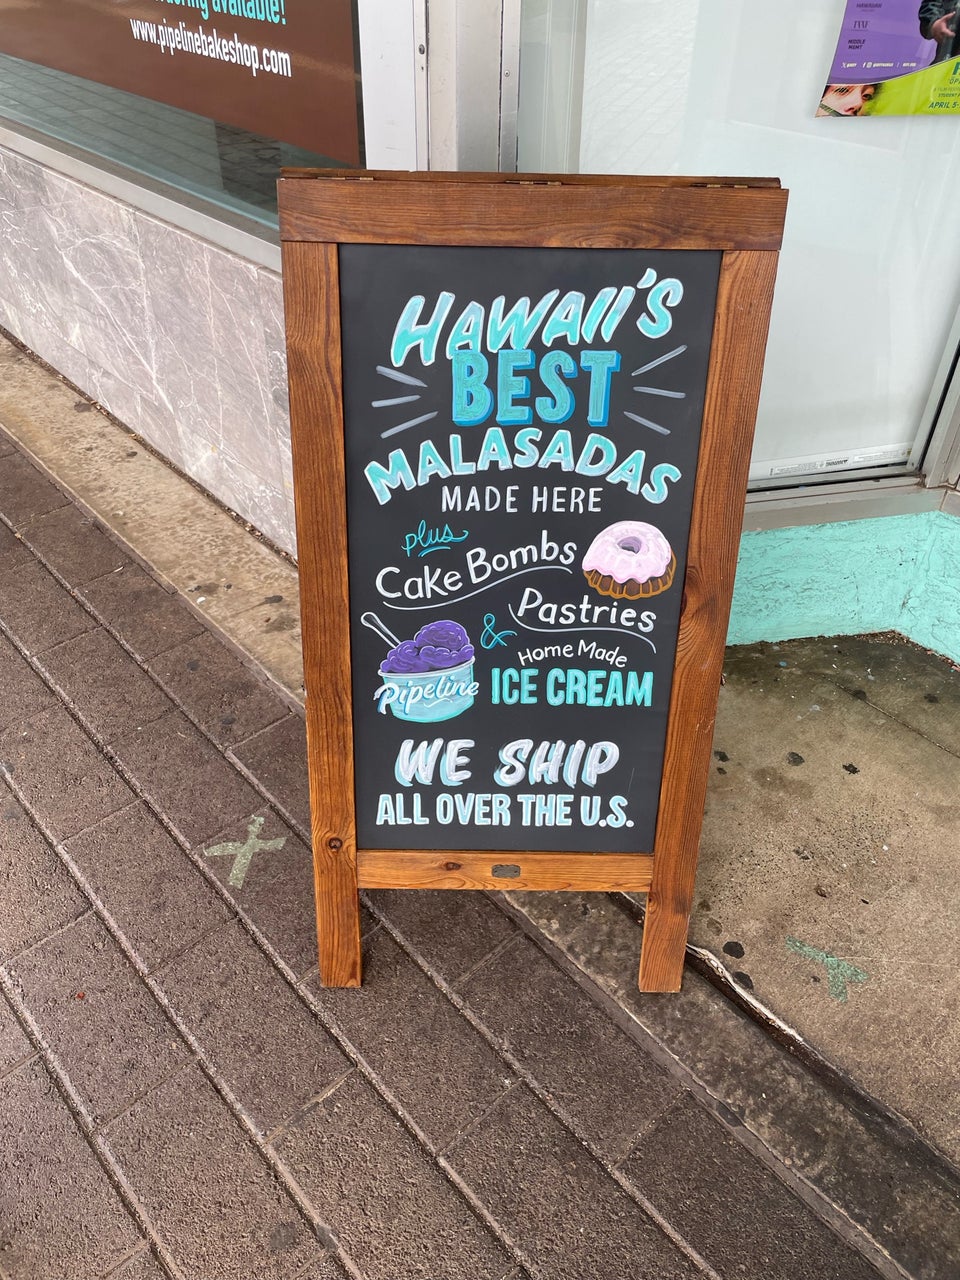 available!
www.pipelinebakeshop.com
HAWAII'S
BEST
MALASADAS
MADE HERE
plus
Cake Bombs
Pastries
&
Home Made
ICE CREAM
Pipeline
WE SHIP
ALL OVER THE U.S.
HAWAIIAN
MIDDLE
MGMT
APRIL 5-